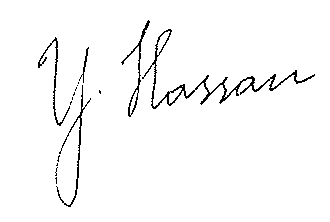 Y. Hassan